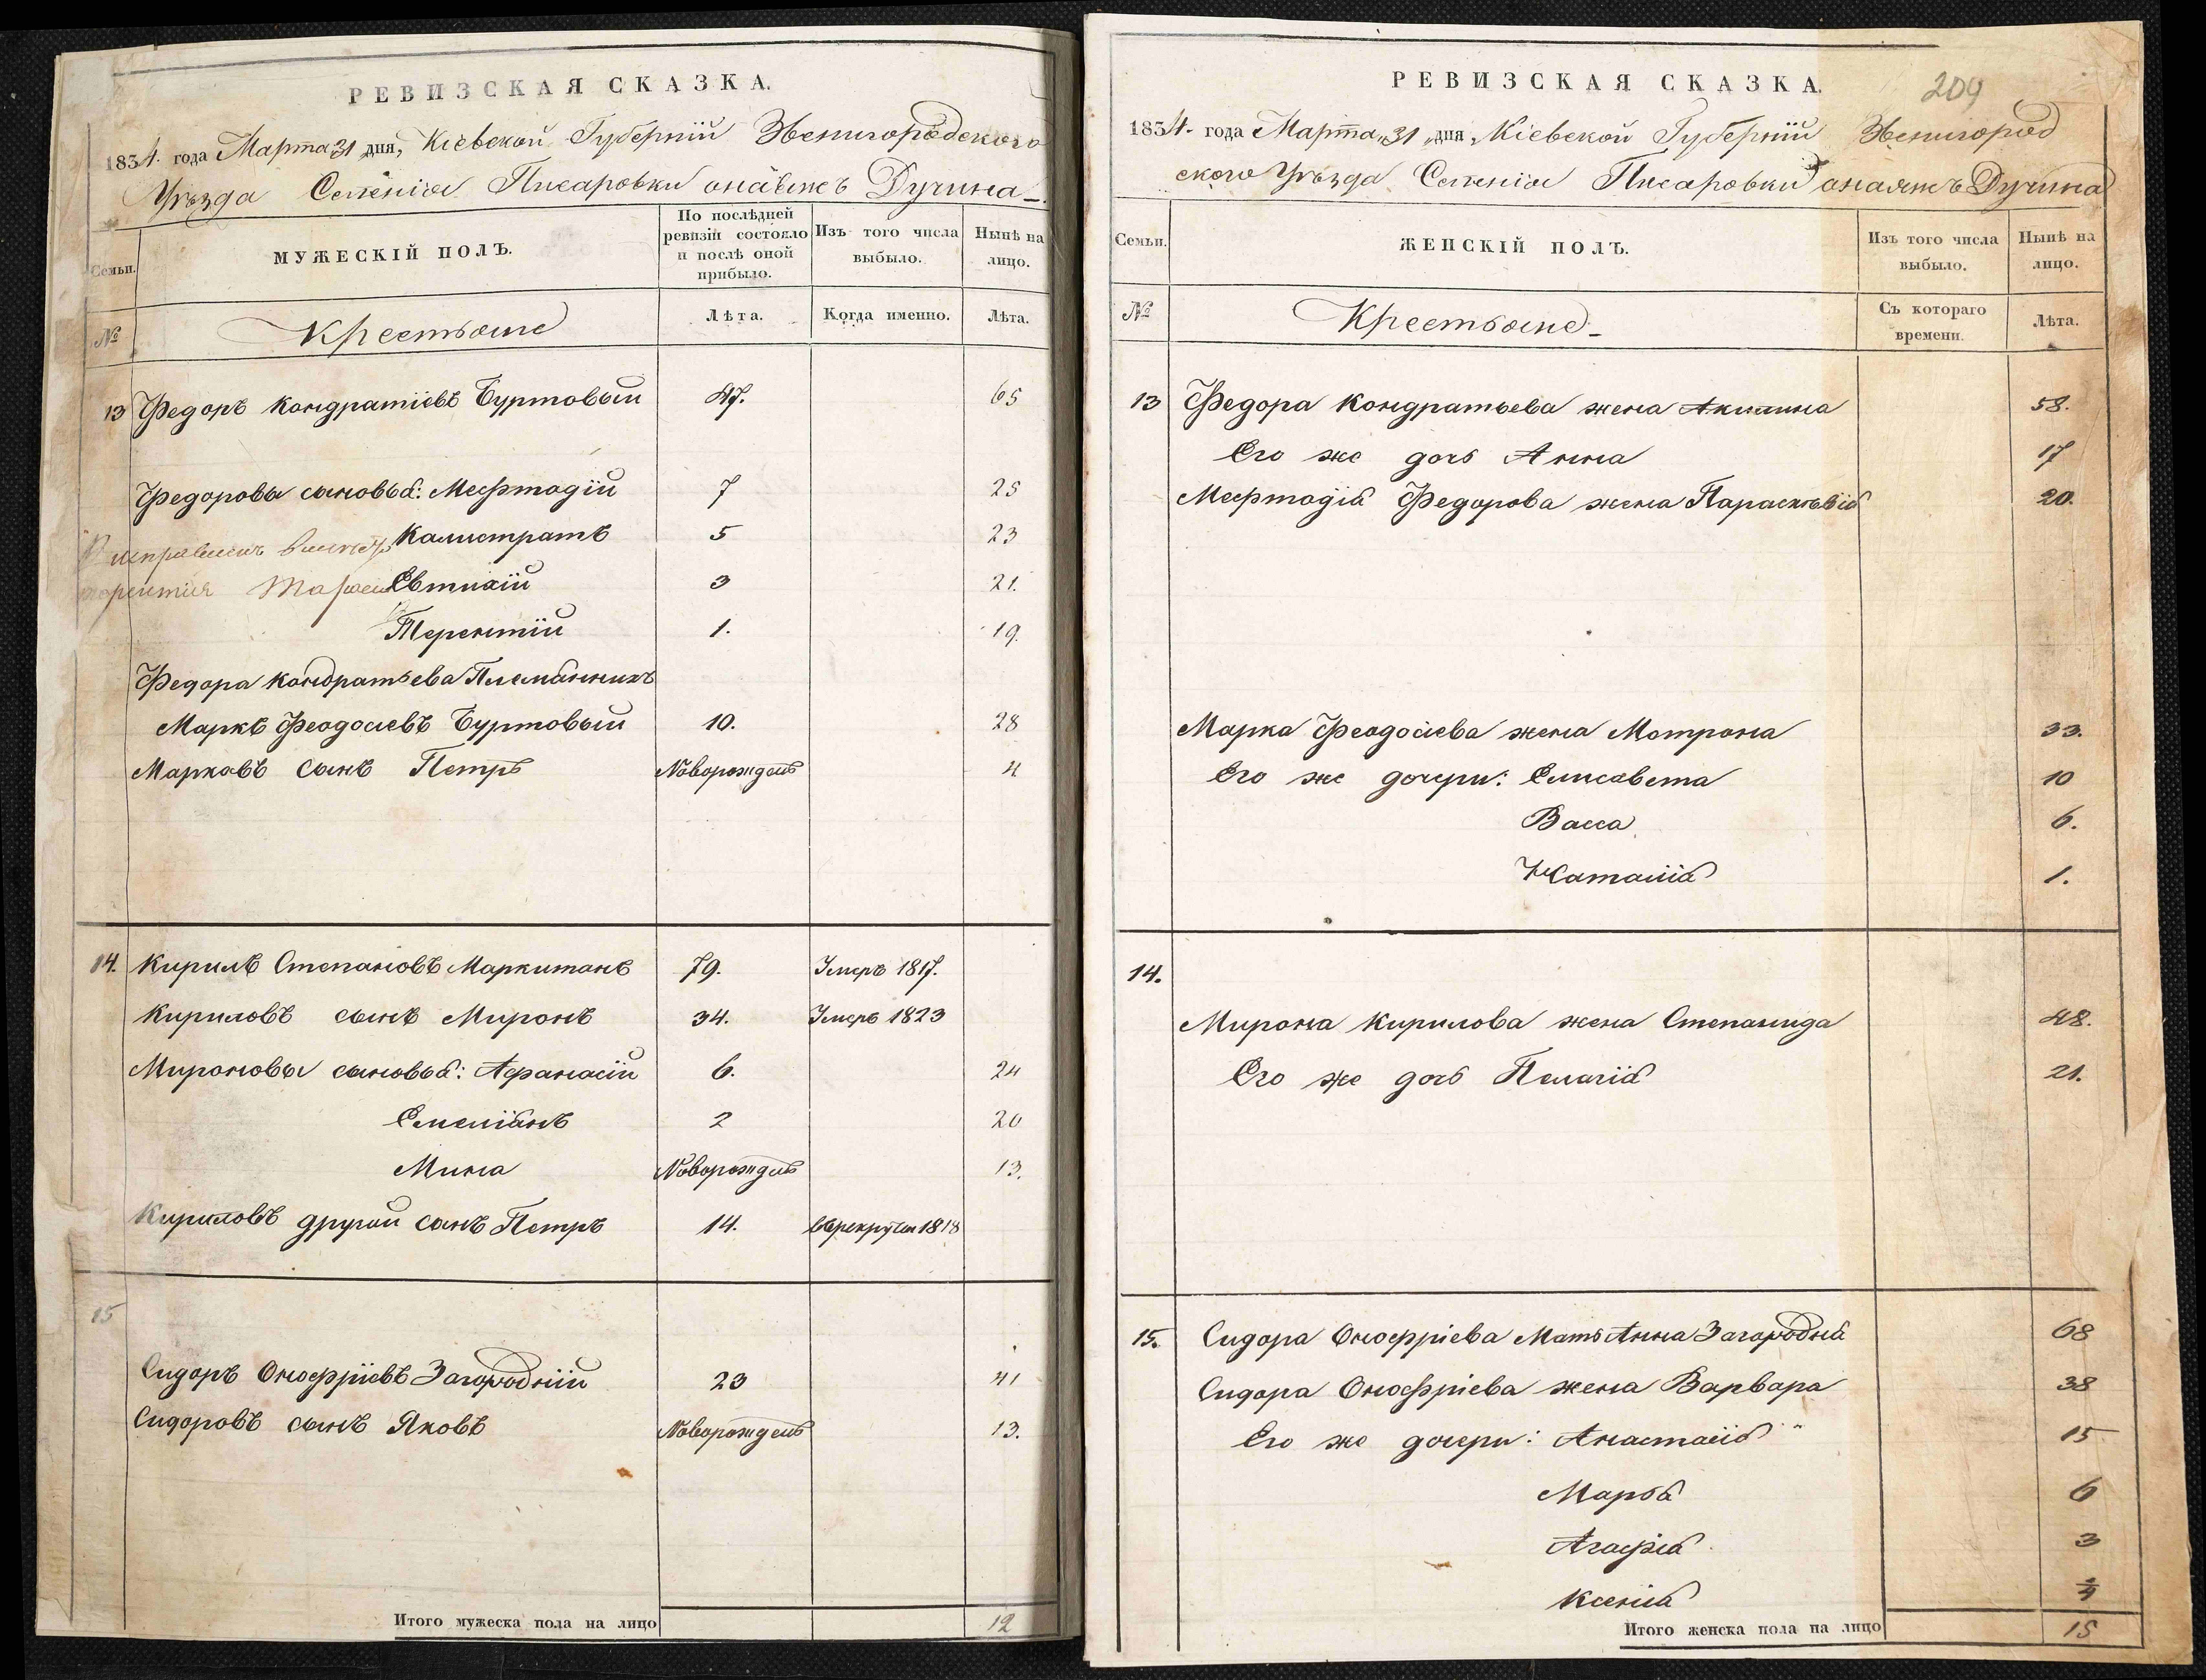 РЕВИЗСКАЯ СКАЗКА.
1834. года Марта 31 дня, Кіевской Губерніи Звенигородскаго
Уѣзда Селенія Писаровки онаяжъ Дучина
Семьи.
МУЖЕСКІЙ ПОЛЪ.
По послѣдней ревизіи состояло и послѣ оной прибыло.
Изъ того числа выбыло.
Нынѣ на лицо.
№
Крестьяне
Лѣта.
Когда именно.
Лѣта.
13 Федоръ Кондратіевъ Буртовый 47. 65
Федоровы сыновья: Мефтодій 7 25
Калистратъ 5 23
Евтихій 3 21.
Терентій 1. 19.
Федора Кондратьева Племянникъ
Маркъ Феодосіевъ Буртовый 10. 28
Марковъ сынъ Петръ Новорожденъ 4
14. Кирилъ Степановъ Маркитанъ 79. Умеръ 1817.
Кириловъ сынъ Миронъ 34. Умеръ 1823
Мироновы сыновья: Афанасій 6. 24
Емеліянъ 2 20
Мина Новорожденъ 13.
Кириловъ другой сынъ Петръ 14. въ рекруты 1818
15
Сидоръ Онофріевъ Загородній 23 41
Сидоровъ сынъ Яковъ Новорожденъ 13.
Итого мужеска пола на лицо 12
РЕВИЗСКАЯ СКАЗКА.
209
1834. года Марта „31 „дня „Кіевской Губерніи Звенигород
скаго Уѣзда Селенія Писаровки онаяжъ Дучина
Семьи.
ЖЕНСКІЙ ПОЛЪ.
Изъ того числа выбыло.
Нынѣ на лицо.
№
Крестьяне
Съ котораго времени.
Лѣта.
13 Федора Кондратьева жена Акилина 58.
Его же дочь Анна 17
Мефтодія Федорова жена Параскѣвія 20.
Марка Феодосіева жена Мотрона 33.
Его же дочери: Елисавета 10
Васса 6.
Наталія 1.
14.
Мирона Кирилова жена Степанида 48.
Его же дочь Пелагія 21.
15. Сидора Онофріева Мать Анна Загородня 68
Сидора Онофріева жена Варвара 38
Его же дочери: Анастасія 15
Марья 6
Агафія 3
Ксенія
Итого женска пола на лицо 15